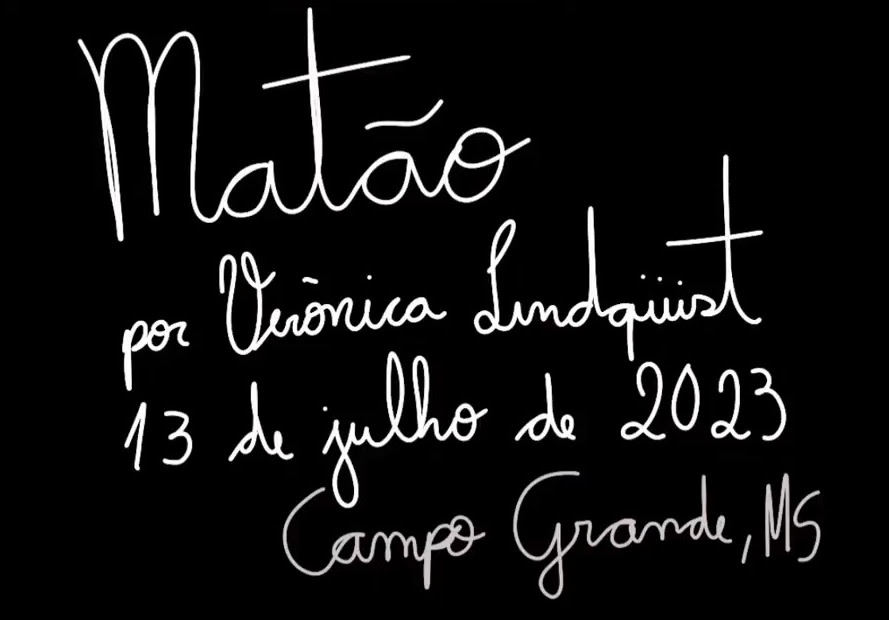 Matão
por Verônica Lindqüist
13 de julho de 2023
Campo Grande, MS